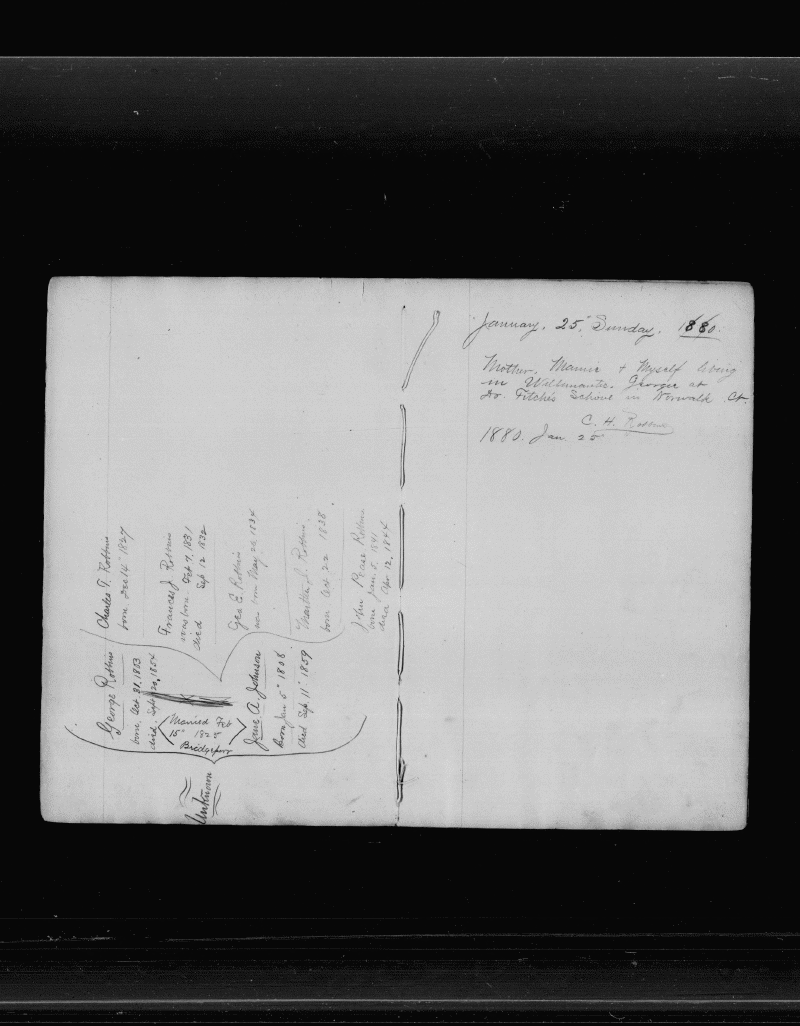 Unknown
George Robbins
born Oct 31, 1803
died. Sept 20, 1854
Married Feb
15" 182
Bridgeport
Jane A. Johnson
Born Jan 5" 1808
Died Sep 11" 1859
Charles T. Robbins
born Dec 14" 1827
Frances J. Robbins
was born Oct 7, 1831
died Sep 12 1832
Geo E. Robbins
was born May 20, 1834
Martha J. Robbins
born Oct 22 1838.
John Pease Robbins
born Jan. 5, 1841
died Apr 12, 1844
January. 25" Sunday. 1880.
Mother, Mamie + Myself living
in Willimantic. Georgie at
Dr. Fitch's School in Norwalk Ct.
C. H. Robbins
1880. Jan 25"